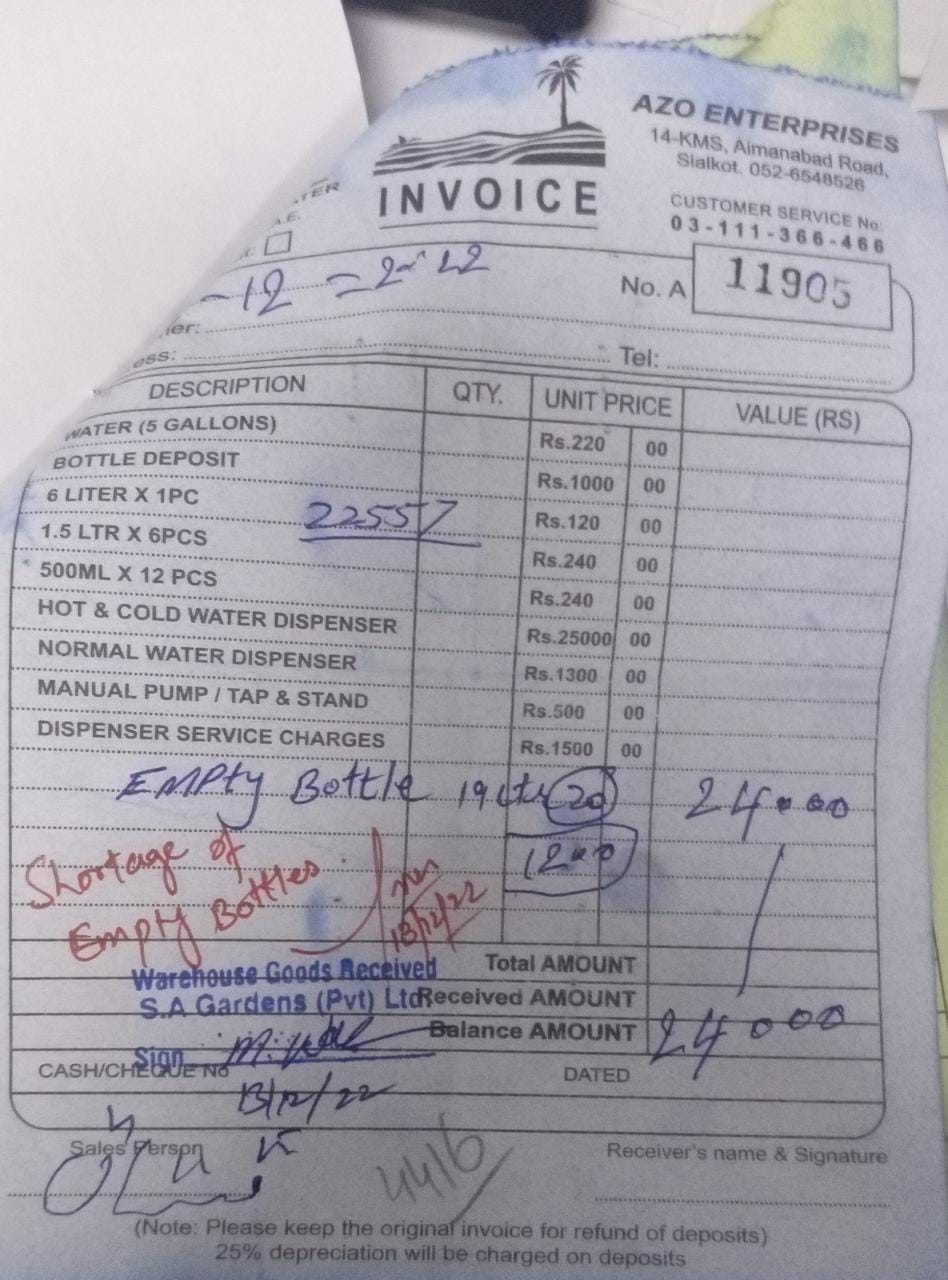 INVOICE
AZO ENTERPRISES
14-KMS, Aimanabad Road,
Sialkot. 052-6548526
CUSTOMER SERVICE No:
03-111-366-466
No. A 11905
-12 = 2022
Tel:
DESCRIPTION QTY. UNIT PRICE VALUE (RS)
WATER (5 GALLONS) Rs.220 00
BOTTLE DEPOSIT Rs.1000 00
6 LITER X 1PC Rs.120 00
22557
1.5 LTR X 6PCS Rs.240 00
500ML X 12 PCS Rs.240 00
HOT & COLD WATER DISPENSER Rs.25000 00
NORMAL WATER DISPENSER Rs.1300 00
MANUAL PUMP / TAP & STAND Rs.500 00
DISPENSER SERVICE CHARGES Rs.1500 00
EMPty Bottle 19 Ltr 20 24000
1200
Shortage of
Empty Bottles
18/12/22
Warehouse Goods Received
S.A Gardens (Pvt) Ltd
Total AMOUNT
Received AMOUNT
Balance AMOUNT 24000
Sign
CASH/CHEQUE No DATED
13/12/22
Sales Person Receiver's name & Signature
4416
(Note: Please keep the original invoice for refund of deposits)
25% depreciation will be charged on deposits